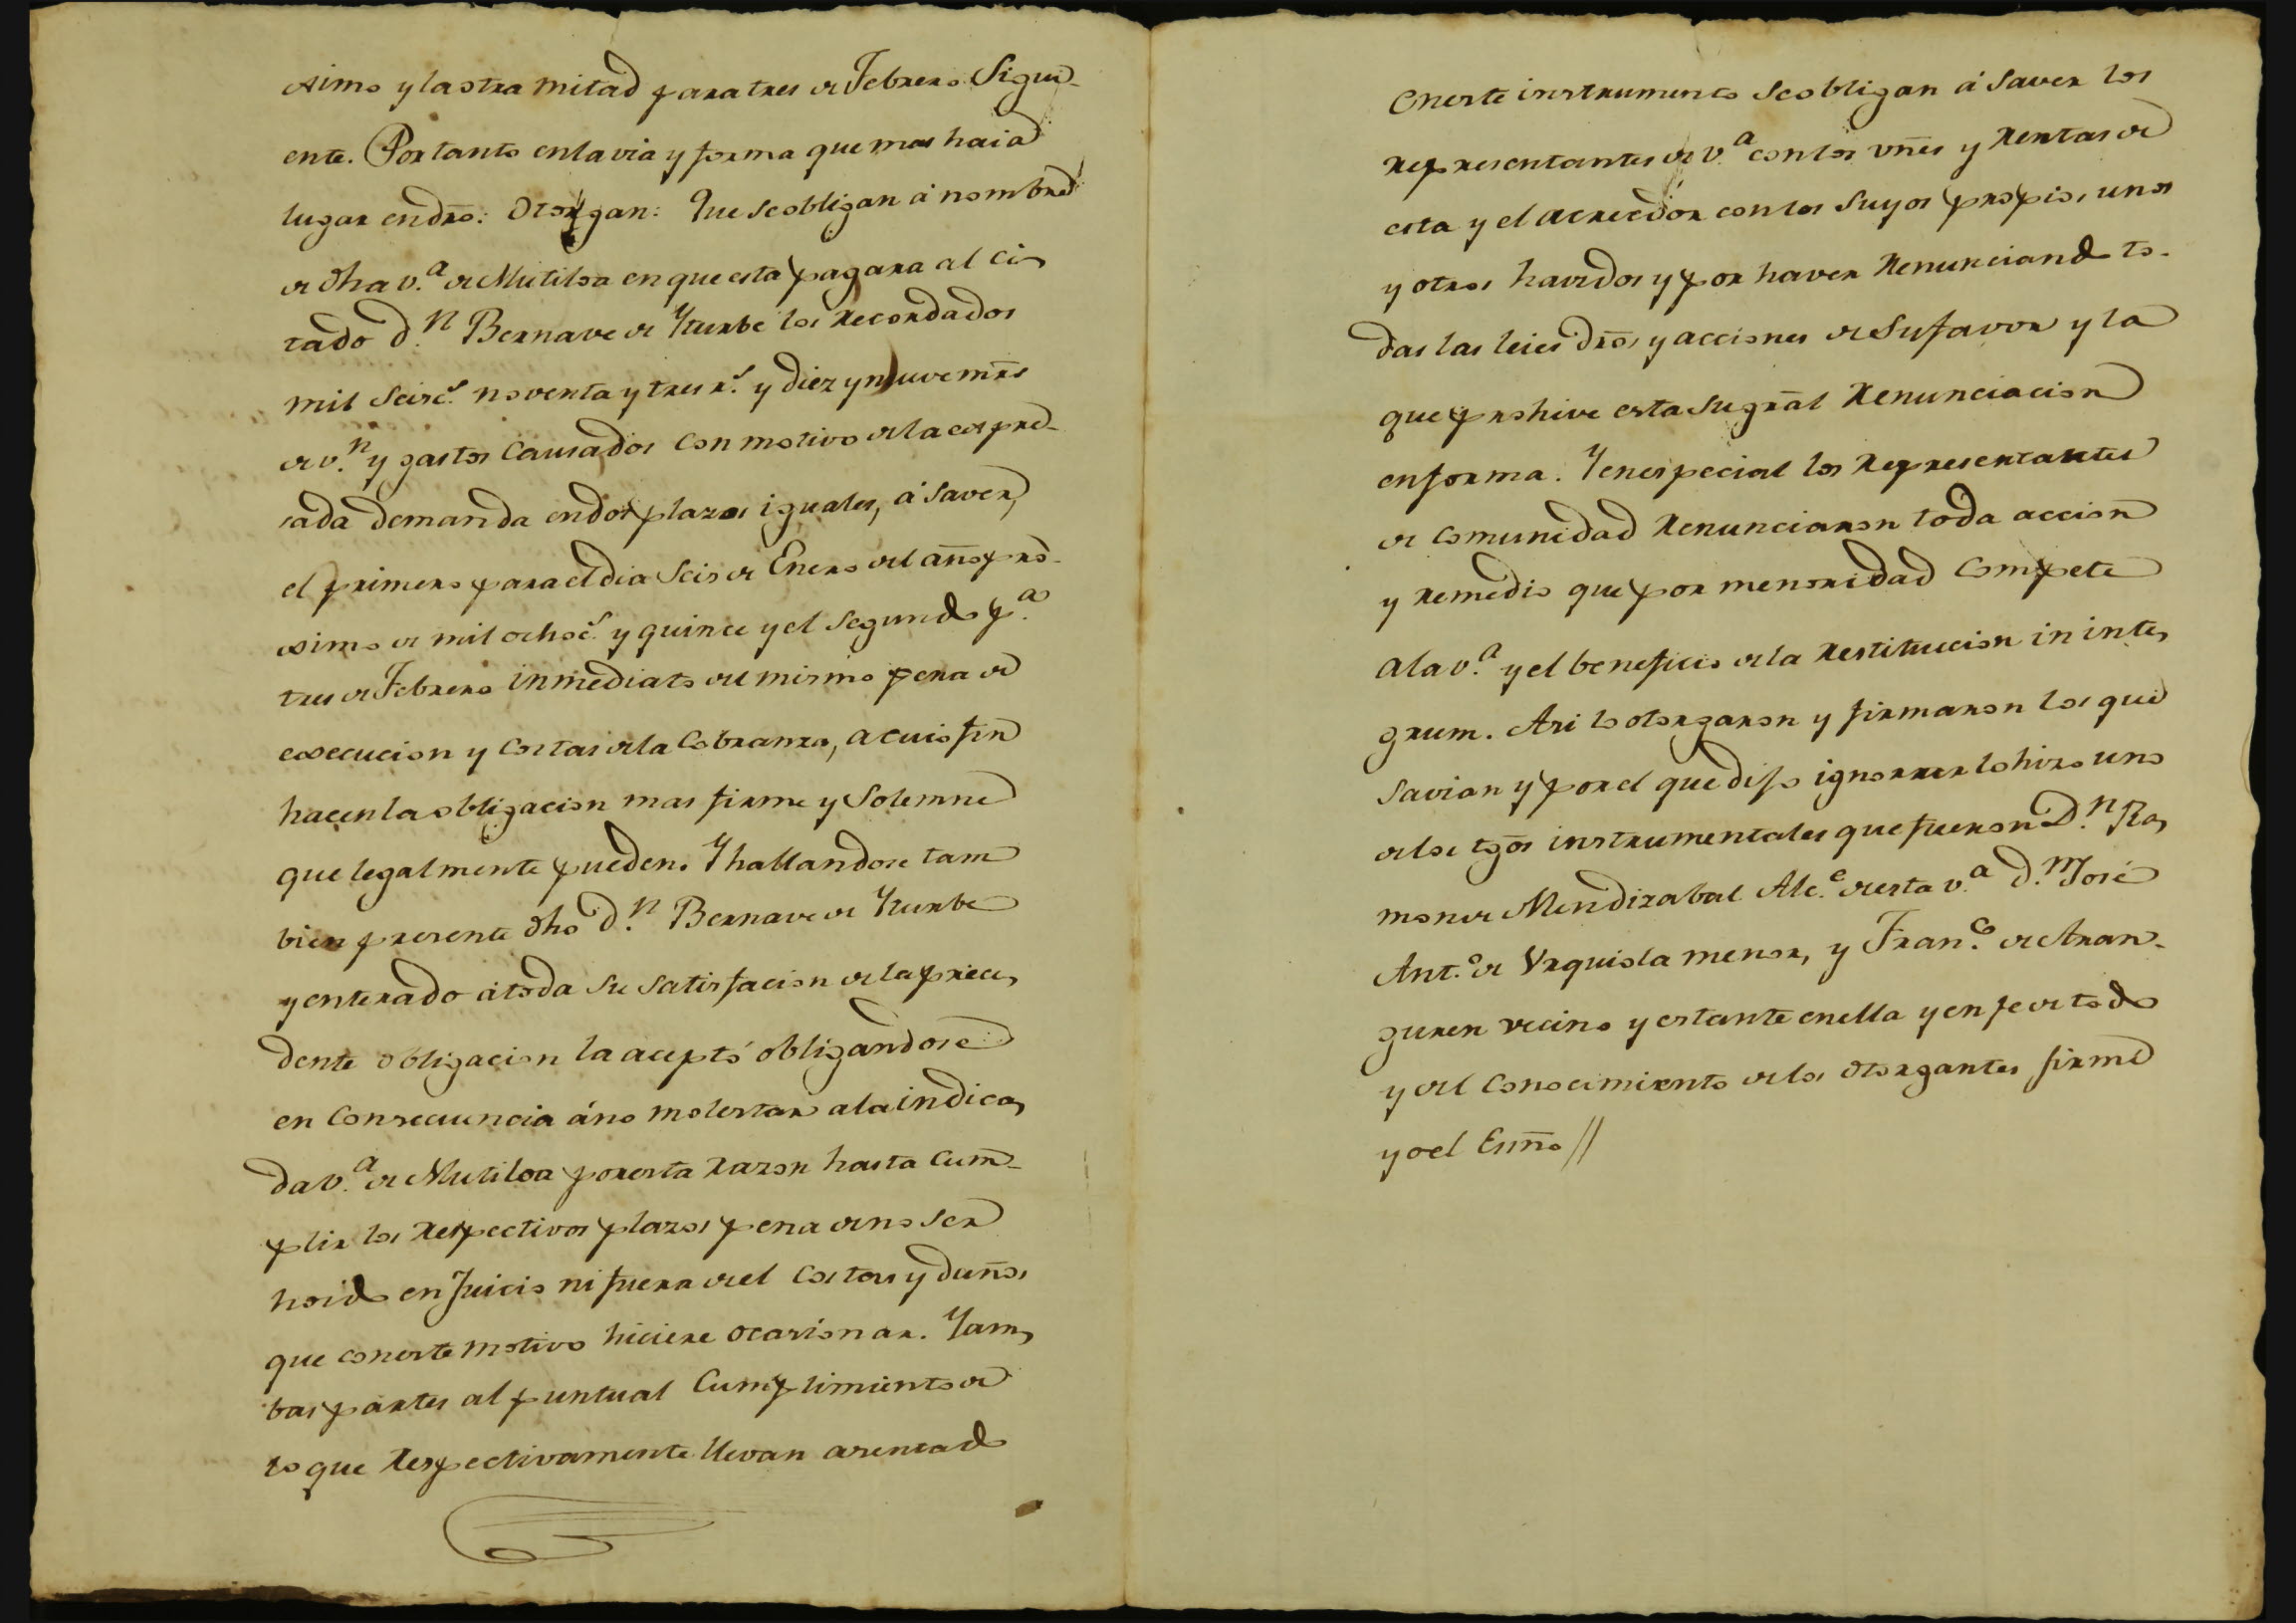 ximo y la otra mitad para tres de Febrero Sigui-
ente. Por tanto en la via y forma que mas haia
lugar en dro: Otorgan: Que se obligan á nombre
de dha v.ª de Mutiloa en que esta pagara al ci-
tado d.n Bernave de Yturbe los recordados
mil seisc.s noventa y tres r.s y diez y nueve mrs
de v.n y gastos causados con motivo de la expre-
sada demanda en dos plazos iguales, á saver,
el primero para el dia seis de Enero del año pro-
ximo de mil ochoc.s y quince y el segundo p.ª
tres de Febrero inmediato del mismo pena de
execucion y costas de la cobranza, a cuio fin
hacen la obligacion mas firme y solemne
que legalmente pueden. Y hallandose tam
bien presente dho d.n Bernave de Yturbe
y enterado á toda su satisfacion de la prece-
dente obligacion la aceptó obligandose
en consecuencia á no molestar a la indica-
da v.ª de Mutiloa por esta razon hasta cum-
plir los respectivos plazos pena de no ser
hoido en Juicio ni fuera de el costas y daños
que con este motivo hiciere ocasionar. Y am-
bas partes al puntual cumplimiento de
lo que respectivamente llevan asentado
en este instrumento se obligan á saver los
representantes de v.ª con los vnes y rentas de
esta y el acreedor con los suyos propios, unos
y otros havidos y por haver renunciando to-
das las leies dros y acciones de su favor y la
que prohive esta su gral renunciacion
en forma. Y en especial los representantes
de comunidad renunciaron toda accion
y remedio que por menoridad compete
a la v.ª y el beneficio de la restituccion in inte-
grum. Asi lo otorgaron y firmaron los que
savian y por el que dijo ignorar lo hizo uno
de los tgos instrumentales que fueron D.n Ra-
mon de Mendizabal Alc.e de esta v.ª d.n José
Ant.o de Urquiola menor, y Fran.co de Aran-
guren vecino y estante en ella y en fe de todo
y del conocimiento de los otorgantes firme
yo el Esno //